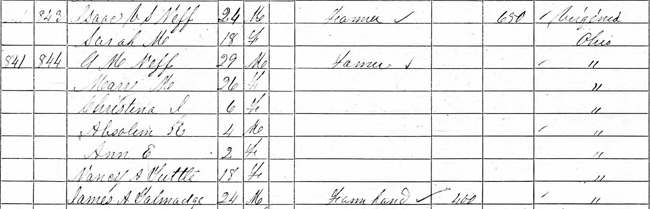 843 Isaac V S Neff 24 M Farmer ✓ 680 ✓ Virginia
Sarah M 18 F Ohio
841 844 A M Neff 29 M Farmer "
Mary M 26 F "
Christina J 6 F "
Absolem R 4 M "
Ann E 2 F "
Nancy A Tuttle 18 F "
James A Talmadge 24 M Farm hand ✓ 400 "